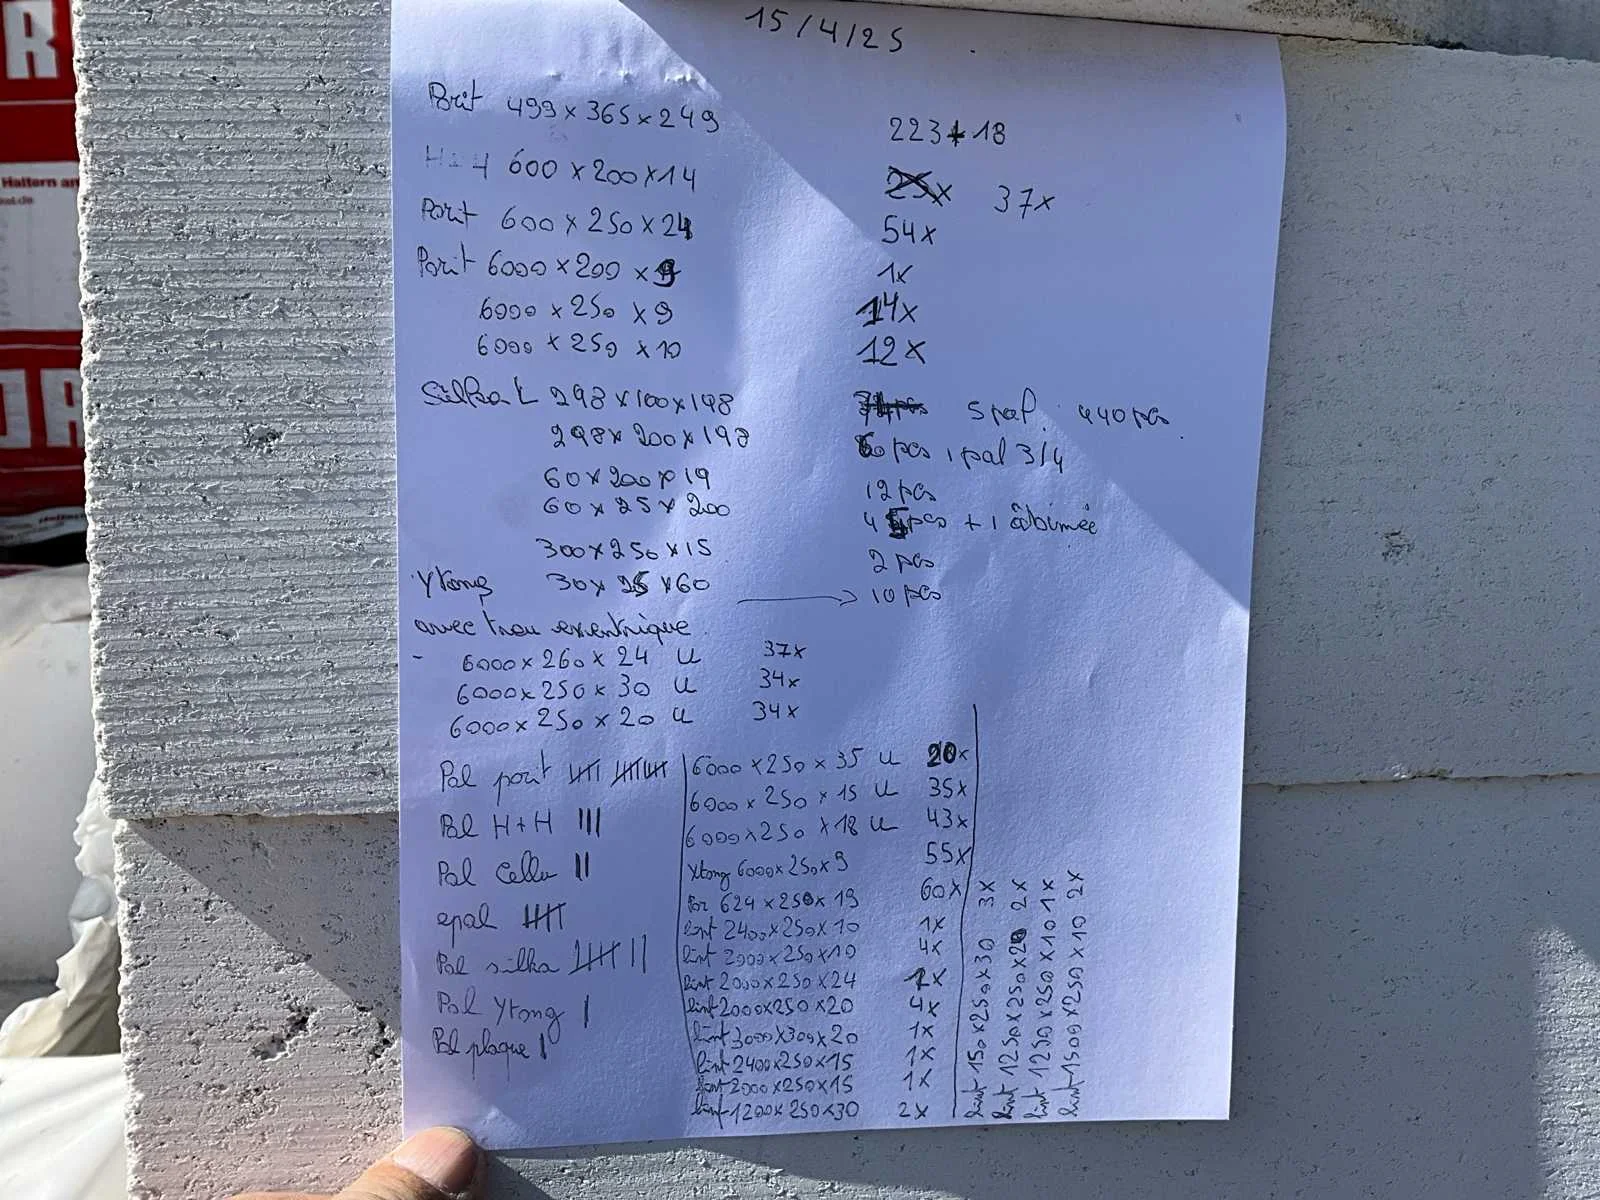 15/4/25
Porit 499 x 365 x 249 223 + 18
H+H 600 x 200 x 14 37x
Porit 600 x 250 x 24 54x
Porit 6000 x 200 x 9 1x
6000 x 250 x 9 14x
6000 x 250 x 10 12x
Silka L 298 x 100 x 198 5 pal. 440 pcs
298 x 200 x 198 60 pcs 1 pal 3/4
60 x 200 x 19 12 pcs
60 x 25 x 200 45 pcs + 1 âbimée
300 x 250 x 15 2 pcs
Ytong 30 x 25 x 60 → 10 pcs
avec trou exentrique
- 6000 x 260 x 24 U 37x
6000 x 250 x 30 U 34x
6000 x 250 x 20 U 34x
Pal porit
Pal H+H III
Pal Cellu II
epal
Pal silka
Pal Ytong I
Pal plaque I
6000 x 250 x 35 U 20x
6000 x 250 x 15 U 35x
6000 x 250 x 18 U 43x
Ytong 6000 x 250 x 9 55x
Por 624 x 250 x 19 60x
lint 2400 x 250 x 10 1x
lint 2000 x 250 x 10 4x
lint 2000 x 250 x 24 2x
lint 2000 x 250 x 20 4x
lint 3000 x 300 x 20 1x
lint 2400 x 250 x 15 1x
lint 2000 x 250 x 15 1x
lint 1200 x 250 x 30 2x
lint 150 x 250 x 30 3x
lint 1250 x 250 x 20 2x
lint 1250 x 250 x 10 1x
lint 1500 x 250 x 10 2x
R
Haltern am